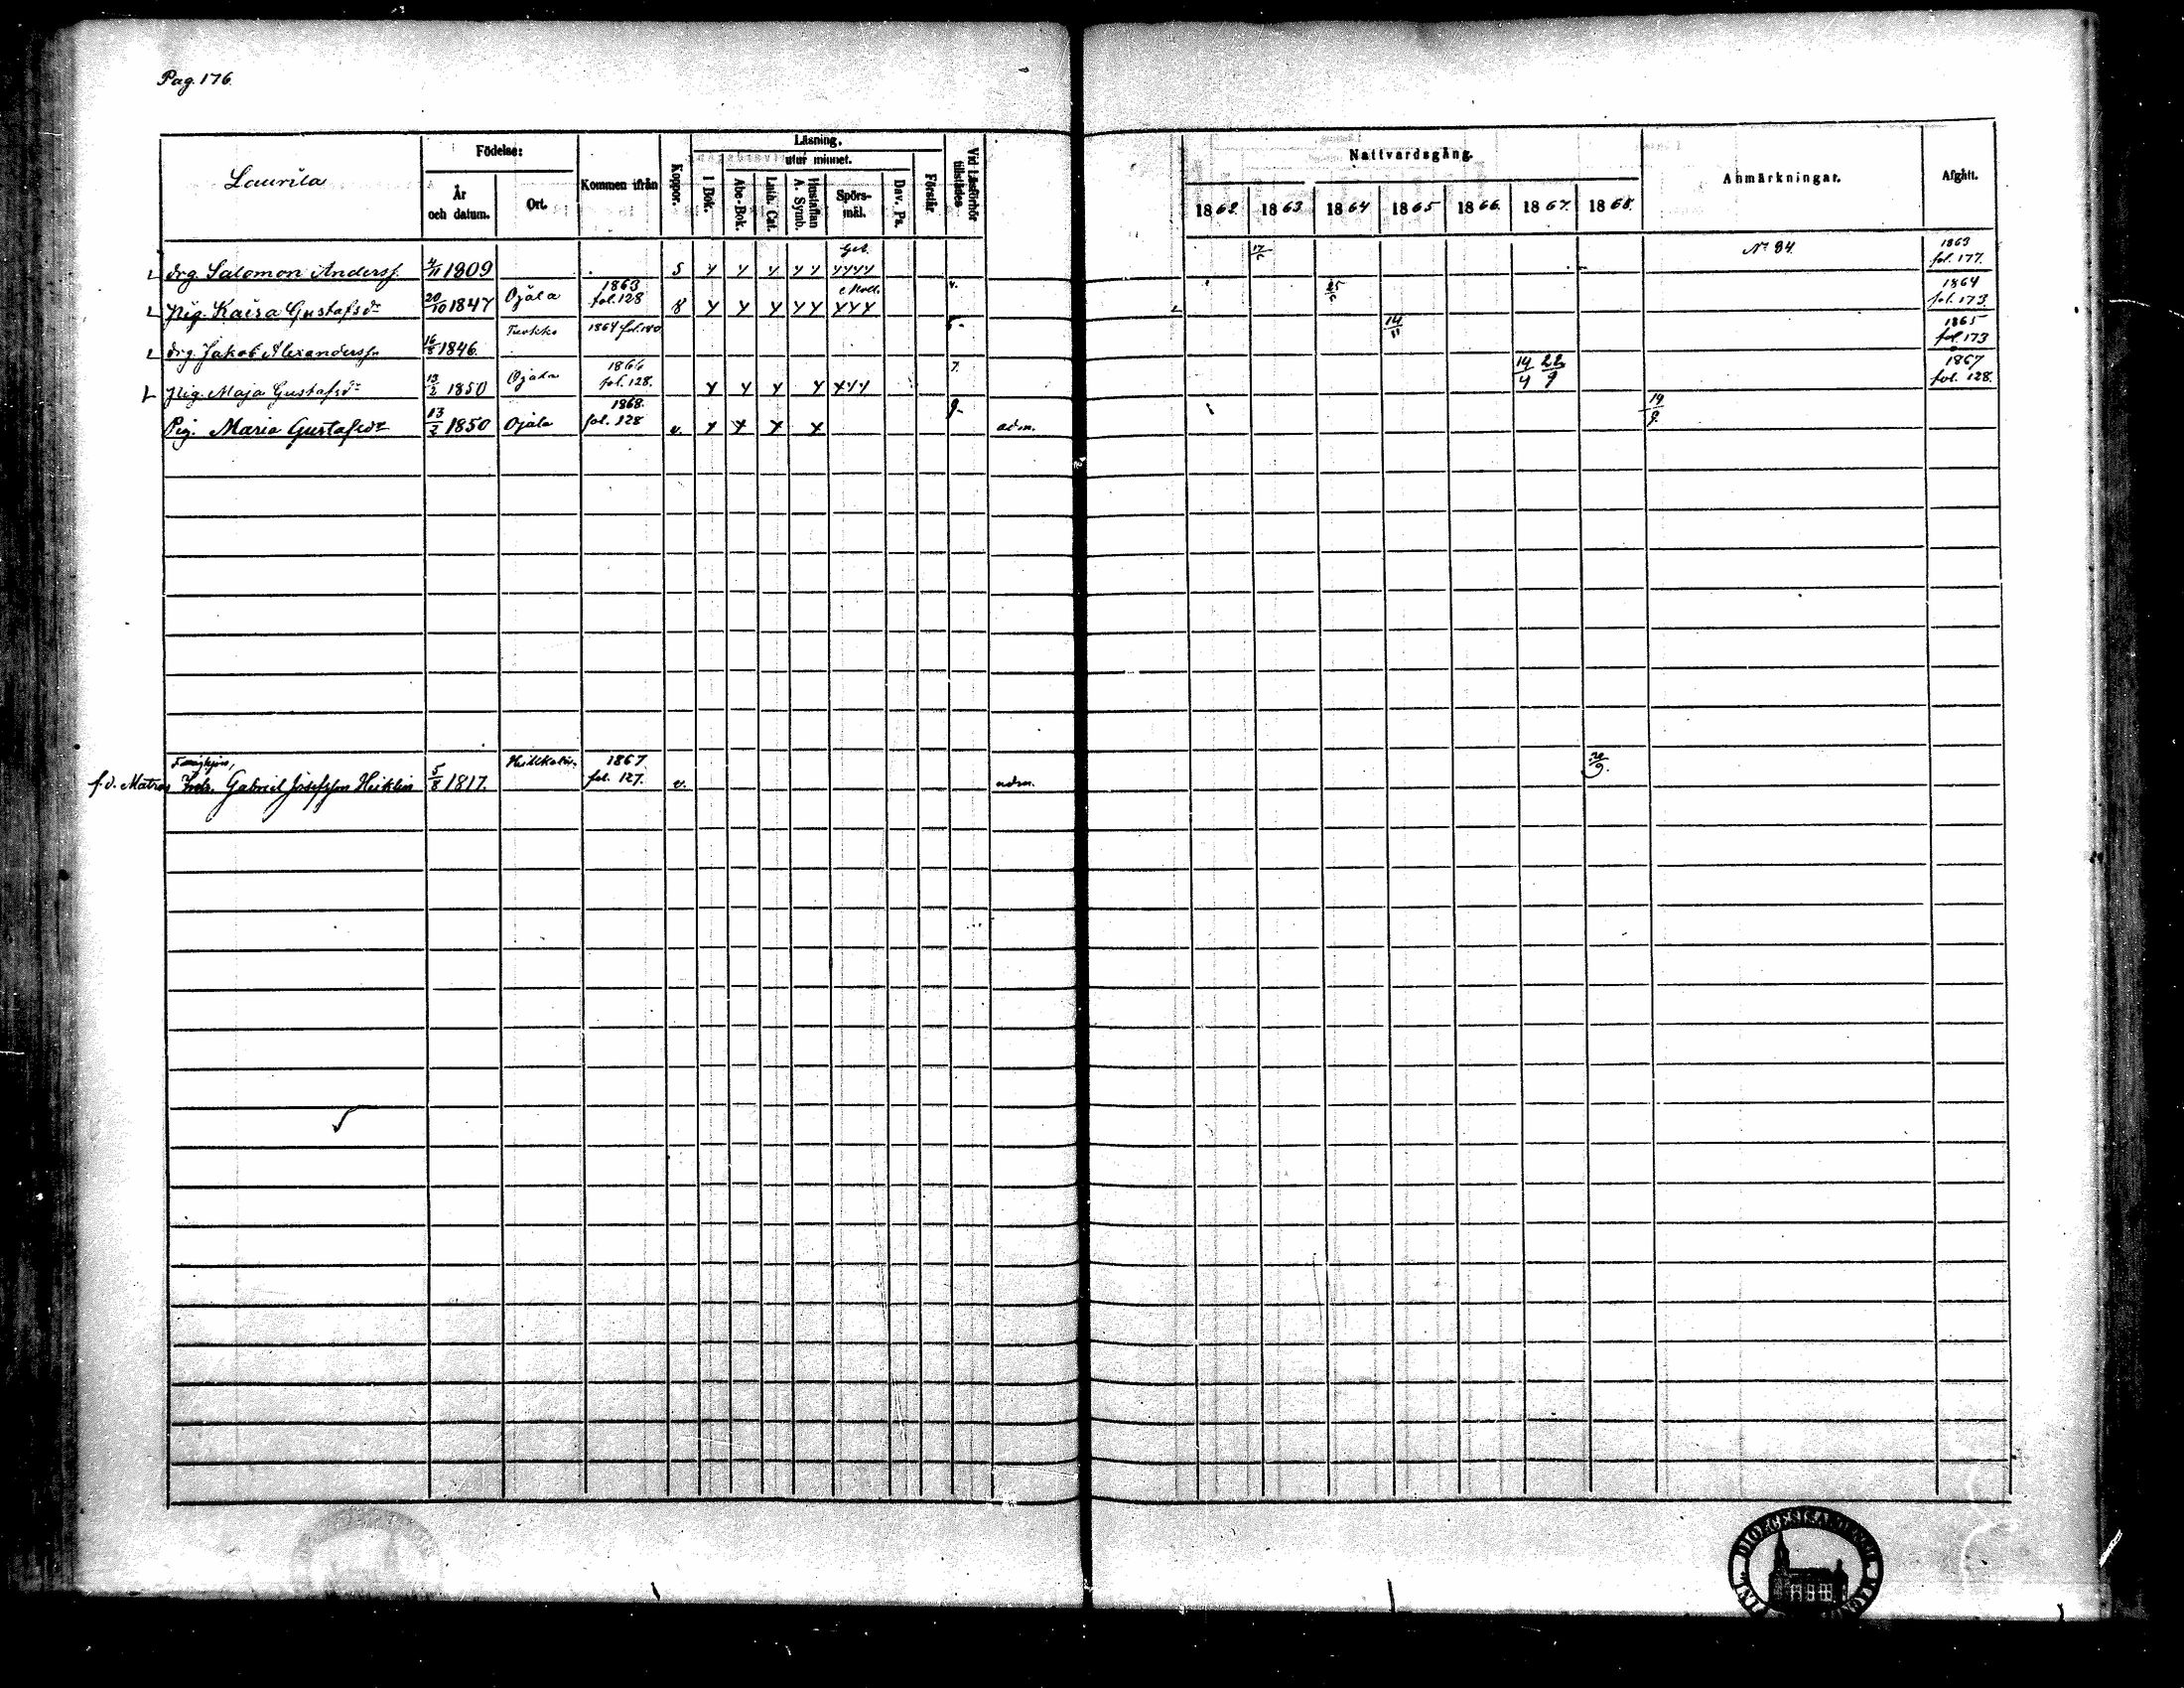 Pag. 176.
Laurila
Födelse:
År och datum.
Ort.
Kommen ifrån
Koppor.
Läsning,
utur minnet.
I Bok.
Abc-Bok.
Luth. Cat.
Hustaflan A. Symb.
Spörsmål.
Dav. Ps.
Förstår.
Vid Läsförhör tillstädes
Nattvardsgång.
1862. 1863 1864 1865 1866. 1867. 1868.
Anmärkningar.
Afgått.
Drg. Salomon Anderss. 4/11 1809 5 Y Y Y YY YYYY 17/ No 84. 1863 fol. 177.
Pig. Kaisa Gustafsdr 20/10 1847 Ojala 1863 fol. 128 8 Y Y Y YY YYY 25/ 1864 fol. 173
Drg. Jakob Alexanderss. 16/8 1846. 1864 fol. 140 14/11 1865 fol. 173
Pig. Maja Gustafsdr 13/2 1850 Ojala 1866 fol. 128. Y Y Y Y YYY 7. 14/4 22/9 1867 fol. 128.
Pig. Maria Gustafsdr 13/2 1850 Ojala 1868. fol. 128 v. Y Y Y Y 9. adm. 19/9.
f.d. Matros Gabriel Josefsson 5/8 1817. 1867 fol. 127. v. adm.